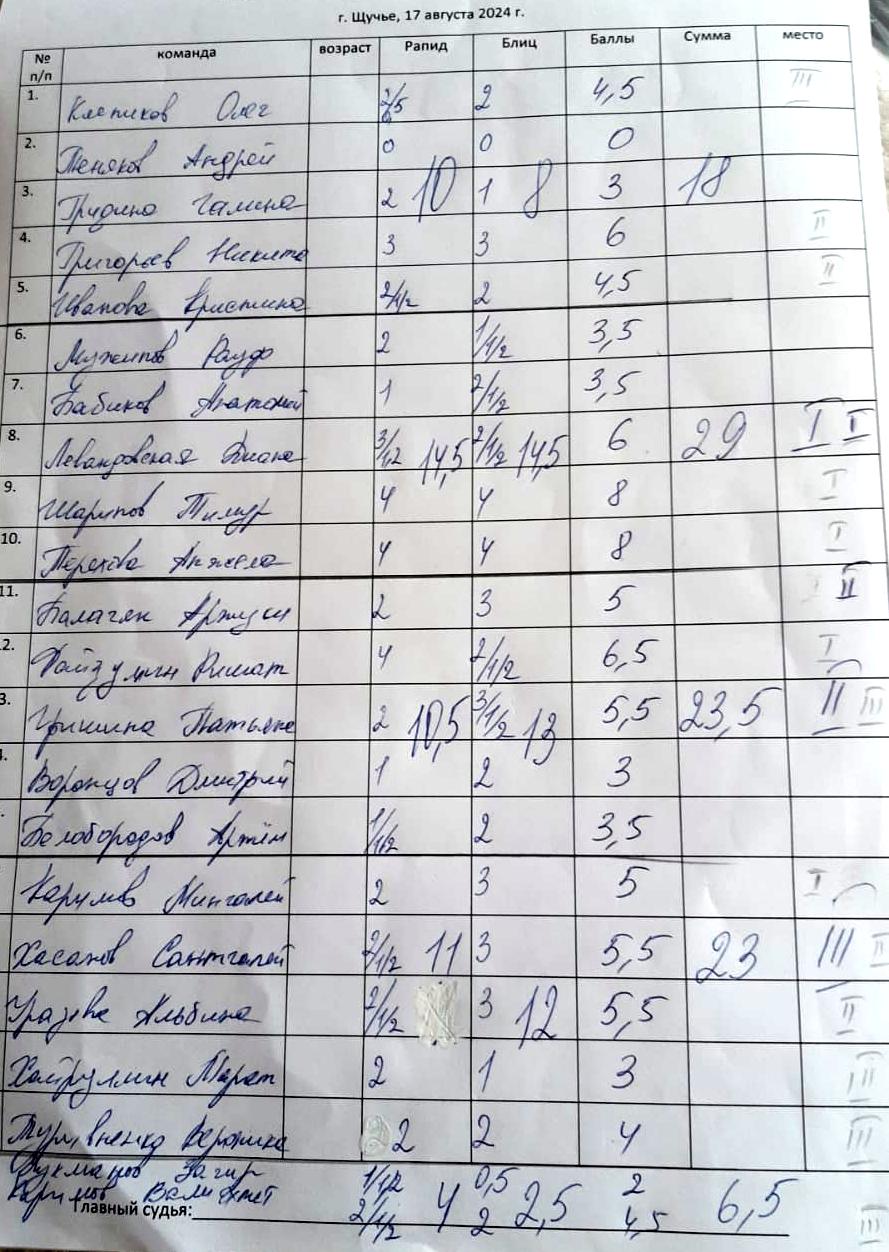 г. Щучье, 17 августа 2024 г.
№ п/п команда возраст Рапид Блиц Баллы Сумма место
1. Клепиков Олег 2/5 2 4,5 III
2. Теняков Андрей 0 0 0
3. Гридина Галина 2 10 1 8 3 18
4. Григорьев Никита 3 3 6 II
5. Иванова Кристина 2/1/2 2 4,5 II
6. Мужипов Рауф 2 1/1/2 3,5
7. Бабиков Анатолий 1 2/1/2 3,5
8. Левандовская Диана 3/1/2 14,5 2/1/2 14,5 6 29 I I
9. Шарипов Тимур 4 4 8 I
10. Терехова Анжела 4 4 8 I
11. Балагян Аржуси 2 3 5 II
2. Файзулин Ринат 4 2/1/2 6,5 I
3. Гришина Татьяна 2 10,5 3/1/2 13 5,5 23,5 II III
Воронцов Дмитрий 1 2 3
Белобородов Артём 1/1/2 2 3,5
Каримов Мингалей 2 3 5 I
Хасанов Саитгалей 2/1/2 11 3 5,5 23 III II
Уразаева Альбина 2/1/2 3 12 5,5 II
Хайруллин Марат 2 1 3 III
Вероника 2 2 4 III
Рукманов Загир 1/1/2 4 0,5 2,5 2 6,5
Каримов 2/1/2 2 4,5 III
Главный судья: